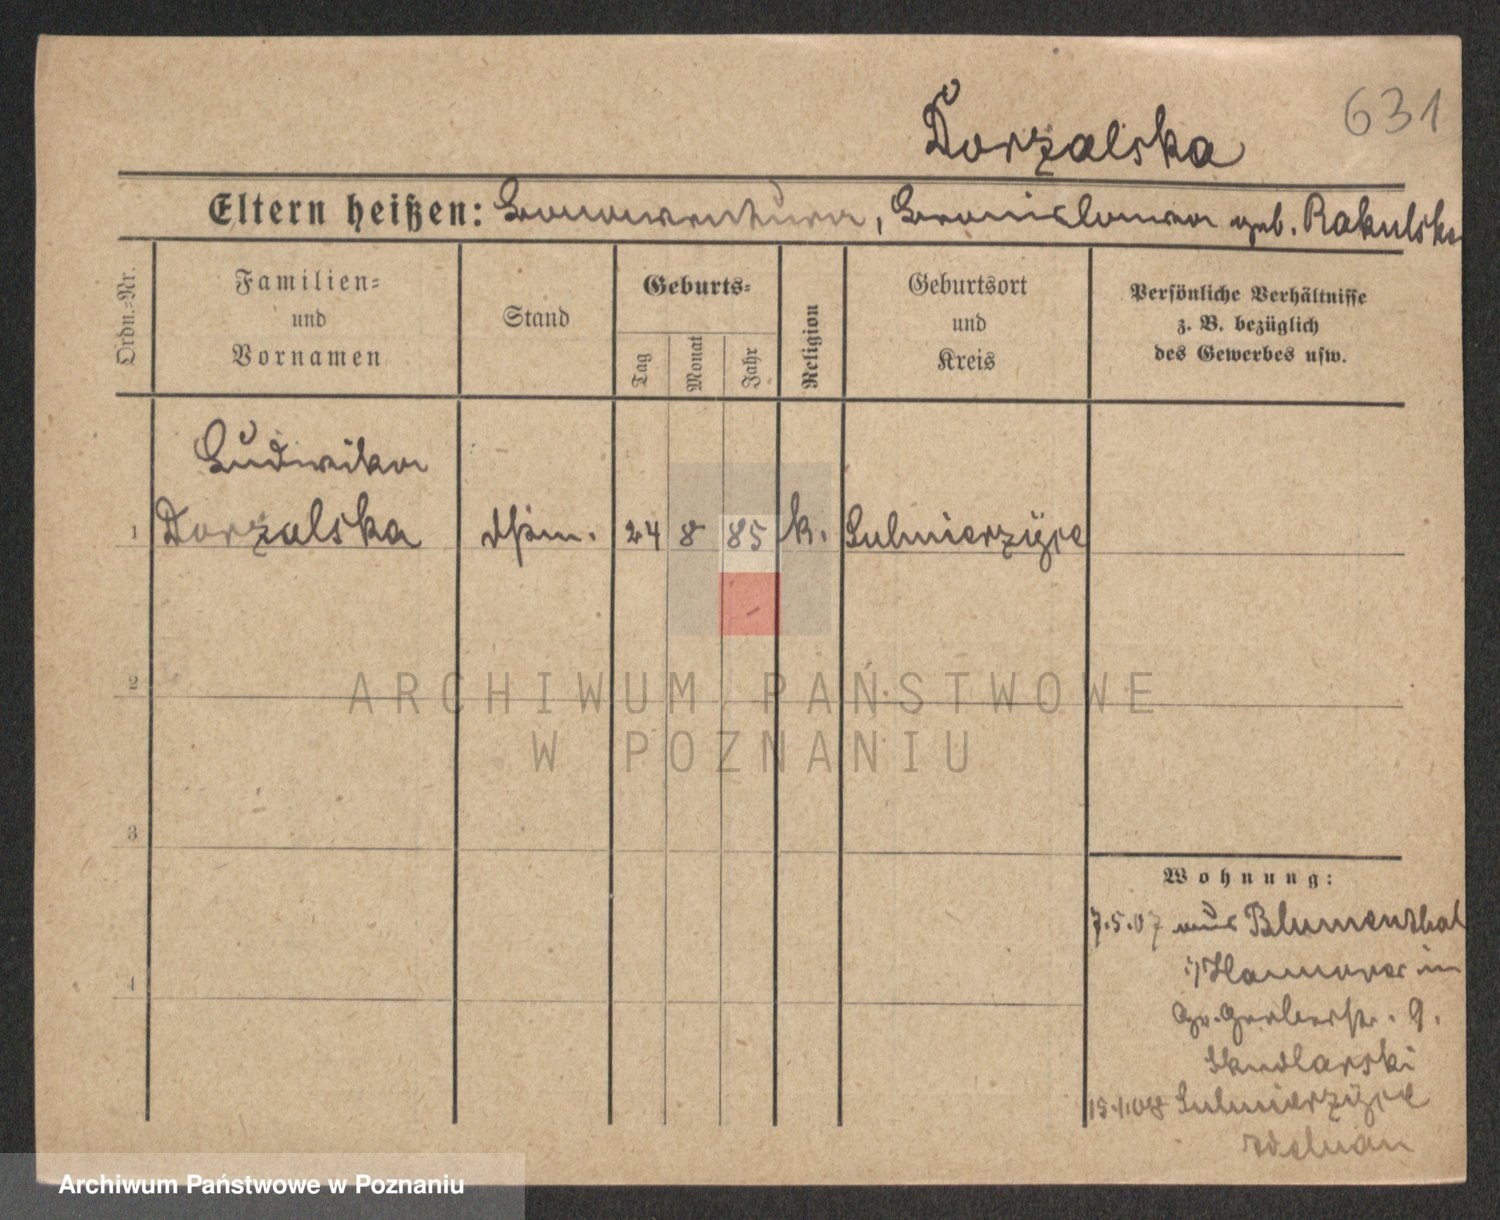 631
Dorzalska
Eltern heißen: Bonawentura, Bronislawa geb. Rakulska
Ordn.=Nr.
Familien=
und
Vornamen
Stand
Geburts=
Tag
Monat
Jahr
Religion
Geburtsort
und
Kreis
Persönliche Verhältnisse
z. B. bezüglich
des Gewerbes usw.
Ludwika
1 Dorzalska 24 8 85 k. Sulmierzyce
2
3
4
Wohnung:
7.5.07 aus Blumenthal
i/Hannover in
Gr. Gerberstr. 9.
Skudlarski
15.1.08 Sulmierzyce
ARCHIWUM PAŃSTWOWE
W POZNANIU
Archiwum Państwowe w Poznaniu